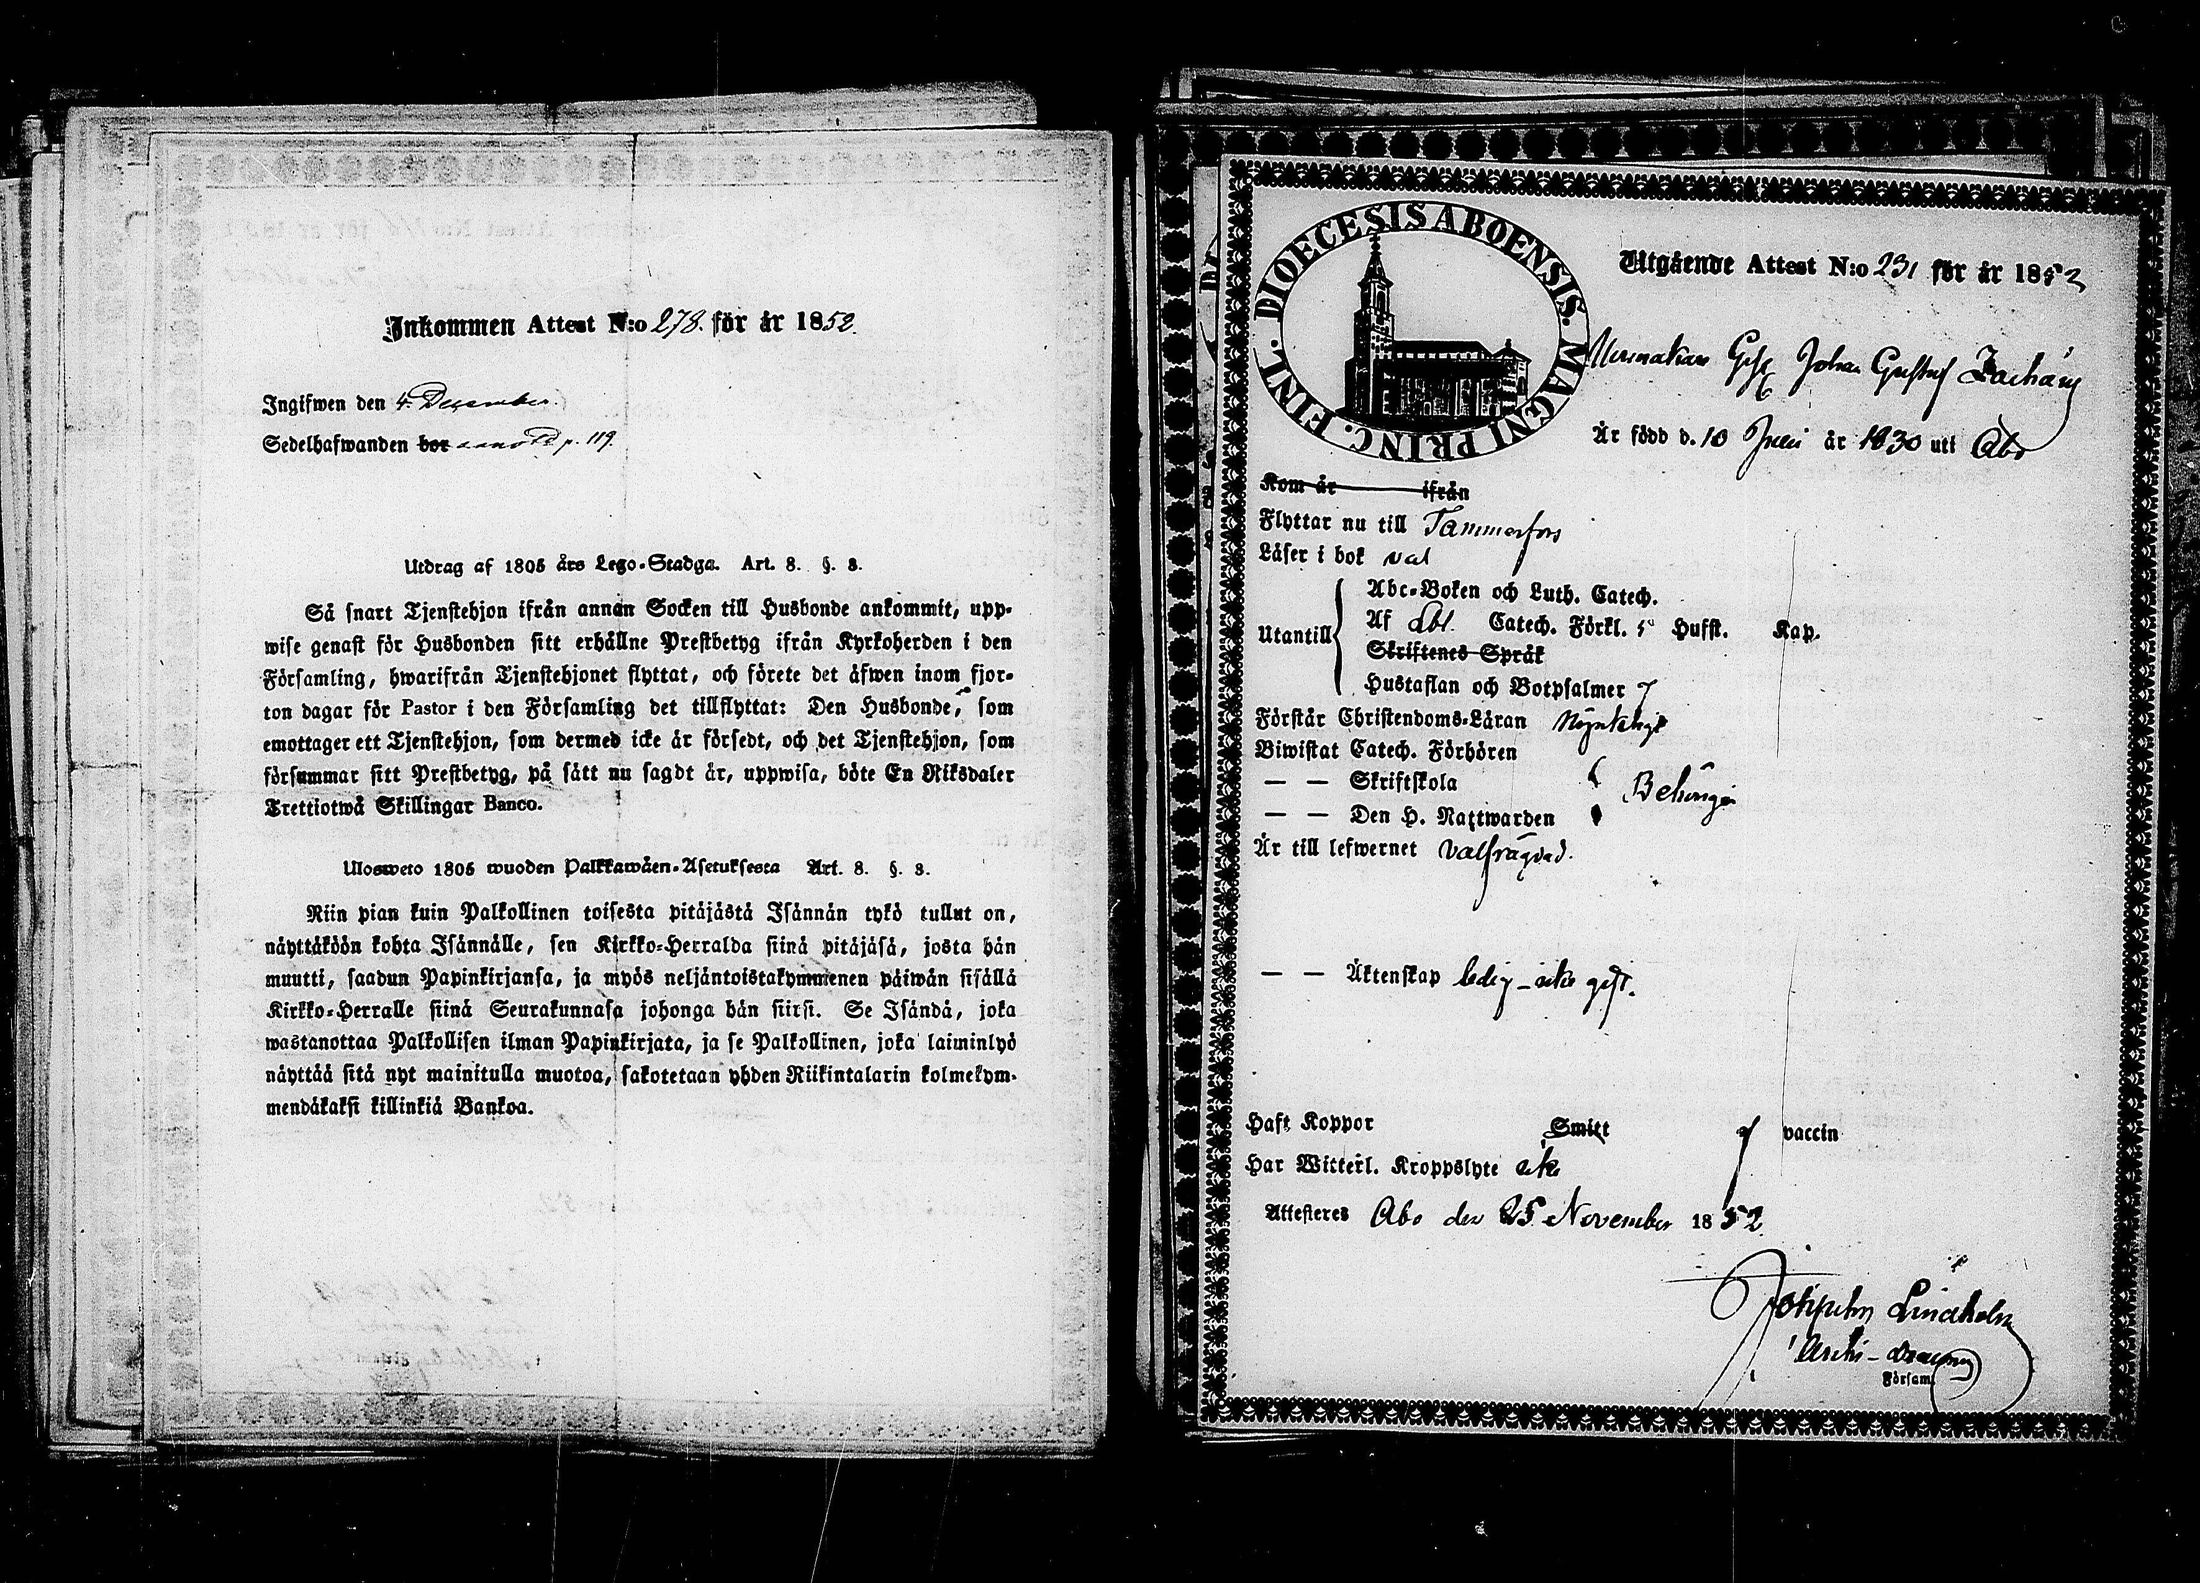 Inkommen Attest N:o 278. för år 1852.
Ingifwen den 4. December.
Sedelhafwanden bor annotd p. 119.
Utdrag af 1805 års Lego-Stadga. Art. 8. §. 3.
Så snart Tjenstehjon ifrån annan Socken till Husbonde ankommit, upp-
wise genast för Husbonden sitt erhållne Prestbetyg ifrån Kyrkoherden i den
Församling, hwarifrån Tjenstehjonet flyttat, och förete det äfwen inom fjor-
ton dagar för Pastor i den Församling det tillflyttat: Den Husbonde, som
emottager ett Tjenstehjon, som dermed icke är försedt, och det Tjenstehjon, som
försummar sitt Prestbetyg, på sätt nu sagdt är, uppwisa, böte En Riksdaler
Trettiotwå Skillingar Banco.
Ulosweto 1805 wuoden Palkkawäen-Asetuksesta Art. 8. §. 3.
Niin pian kuin Palkollinen toisesta pitäjästä Isännän tykö tullut on,
näyttäköön kohta Isännälle, sen Kirkko-Herralda siinä pitäjäsä, josta hän
muutti, saadun Papinkirjansa, ja myös neljäntoistakymmenen päiwän sisällä
Kirkko-Herralle siinä Seurakunnasa johonga hän siirsi. Se Isändä, joka
wastanottaa Palkollisen ilman Papinkirjata, ja se Palkollinen, joka laiminlyö
näyttää sitä nyt mainitulla muotoa, sakotetaan yhden Riikintalarin kolmekym-
mendäkaksi killinkiä Bankoa.
DIOECESIS ABOENSIS. MAGNI PRINC. FINL.
Utgående Attest N:o 231 för år 1852
Johan Gustaf
Är född d. 10 Juli år 1830 uti Åbo
Kom år ifrån
Flyttar nu till Tammerfors
Läser i bok väl
Utantill
Abc-Boken och Luth. Catech.
Af Abl. Catech. Förkl. 5 Hufst. Kap.
Skriftenes Språk
Hustaflan och Botpsalmer
Förstår Christendoms-Läran Nöjaktligt
Biwistat Catech. Förhören
— — Skriftskola
Behörigen
— — Den H. Nattwarden
Är till lefwernet välfrägdad.
— — Äktenskap ledig - icke gift.
Haft Koppor Smitt vaccin
Har Witterl. Kroppslyte icke
Attesteres Åbo den 25 November 1852
Lindholm
Församl.